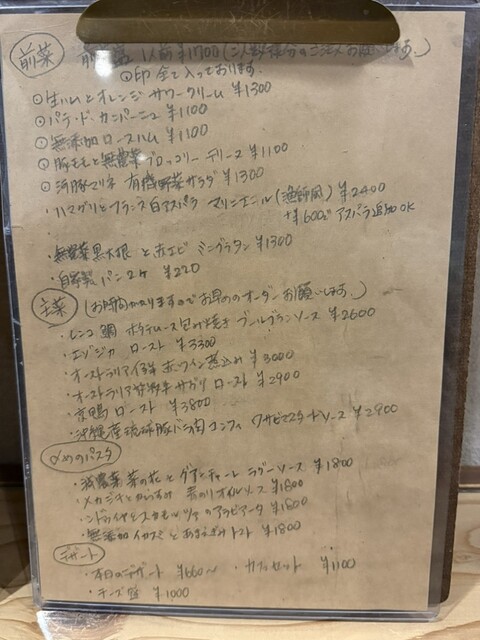 前菜 前菜盛 1人前 ¥1700 (ご人数様分のご注文お願いします。)
◎印 全て入っております。
◎ 生ハムとオレンジ サワークリーム ¥1300
◎ パテ・ド・カンパーニュ ¥1100
◎ 無添加 ロースハム ¥1100
◎ 豚モモと無農薬ブロッコリー テリーヌ ¥1100
◎ 豚マリネ 有機野菜サラダ ¥1300
・ハマグリとフランス白アスパラ マリニエール (漁師風) ¥2400
+¥600でアスパラ追加OK
・無農薬黒大根 と赤エビ ミニグラタン ¥1300
・自家製 パン 2ヶ ¥220
主菜 (お時間かかりますので お早めのオーダーお願いします。)
・レンコ鯛 ポテトソース包み焼き ブールブランソース ¥2600
・エゾジカ ロースト ¥3300
・オーストラリア仔羊 赤ワイン煮込み ¥3000
・オーストラリア 牛 サガリ ロースト ¥2900
・京鴨 ロースト ¥3800
・沖縄産琉球豚バラ肉コンフィ ワサビマスタードソース ¥2900
〆めのパスタ
・減農薬 菜の花と グアンチャーレ ラグーソース ¥1800
・メカジキとからすみ 青のりオイルソース ¥1800
・ンドゥイヤとスカモルツァのアラビアータ ¥1800
・無添加 イカスミと あまえびみトマト ¥1800
デザート
・本日のデザート ¥660〜 ・カフェセット ¥1100
・チーズ盛 ¥1000